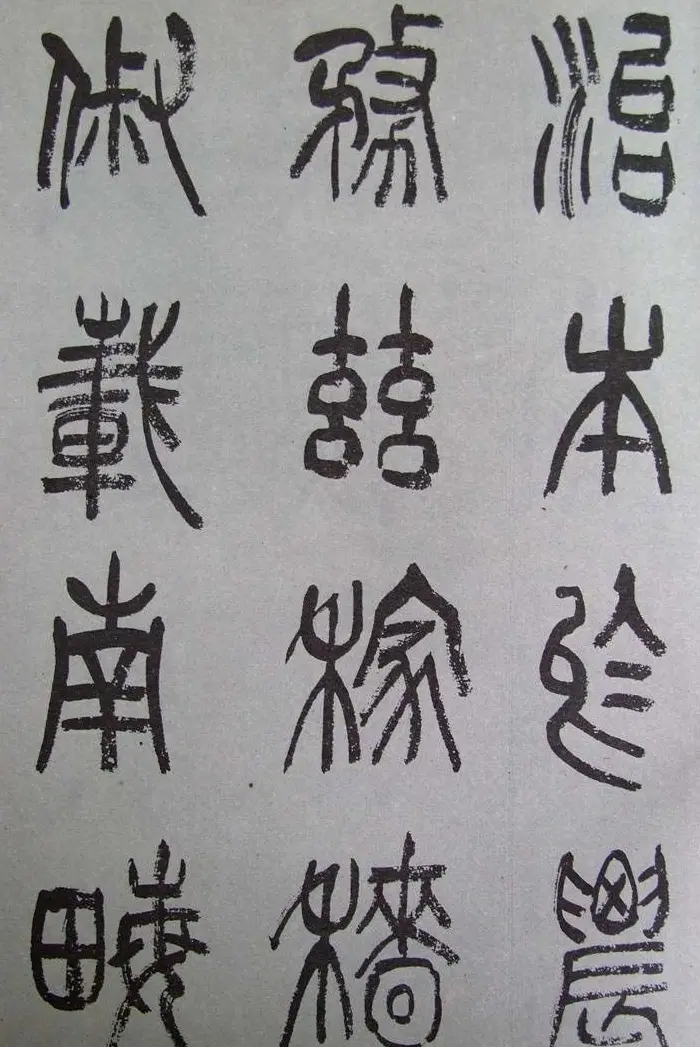 治本於農
務茲稼穡
俶載南畮